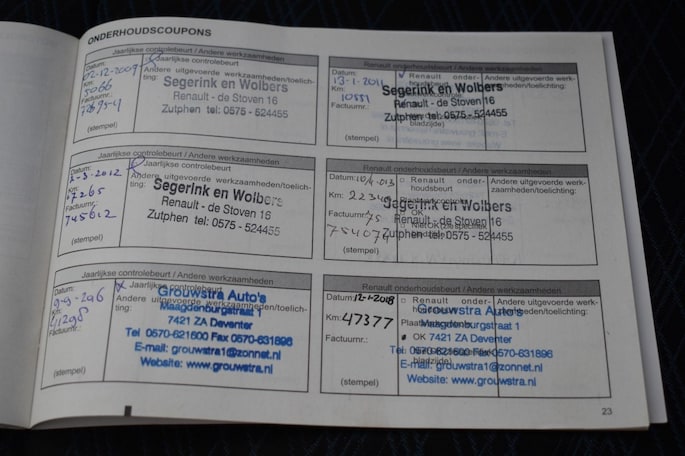 ONDERHOUDSCOUPONS
Jaarlijkse controlebeurt / Andere werkzaamheden
Datum: Jaarlijkse controlebeurt
02-12-2009 Andere uitgevoerde werkzaamheden/toelich-
Km: ting:
5066
Factuurnr.:
Segerink en Wolbers
Renault - de Stoven 16
Zutphen tel: 0575 - 524455
(stempel)
Renault onderhoudsbeurt / Andere werkzaamheden
Datum: Renault onder- Andere uitgevoerde werk-
13-1-2011
Km:
10551
Factuurnr.:
Segerink en Wolbers
Renault - de Stoven 16
Zutphen tel: 0575 - 524455
bladzijde)
(stempel)
Jaarlijkse controlebeurt / Andere werkzaamheden
Datum: Jaarlijkse controlebeurt
Andere uitgevoerde werkzaamheden/toelich-
Km: ting:
Factuurnr.:
745612
Segerink en Wolbers
Renault - de Stoven 16
Zutphen tel: 0575 - 524455
(stempel)
Renault onderhoudsbeurt / Andere werkzaamheden
Datum: Renault onder- Andere uitgevoerde werk-
houdsbeurt zaamheden/toelichting:
Km:
Factuurnr.:
OK
Segerink en Wolbers
Renault - de Stoven 16
Zutphen tel: 0575 - 524455
(stempel)
Jaarlijkse controlebeurt / Andere werkzaamheden
Datum: Jaarlijkse controlebeurt
Andere uitgevoerde werkzaamheden/toelich-
Km: ting:
41298
Factuurnr.:
Grouwstra Auto's
Maagdenburgstraat 1
7421 ZA Deventer
Tel 0570-621600 Fax 0570-631898
E-mail: grouwstra1@zonnet.nl
Website: www.grouwstra.nl
(stempel)
Renault onderhoudsbeurt / Andere werkzaamheden
Datum: 12-1-2018 Renault onder- Andere uitgevoerde werk-
Km: 47377
Factuurnr.: OK
Grouwstra Auto's
Maagdenburgstraat 1
7421 ZA Deventer
Tel 0570-621600 Fax 0570-631898
E-mail: grouwstra1@zonnet.nl
Website: www.grouwstra.nl
bladzijde)
(stempel)
23